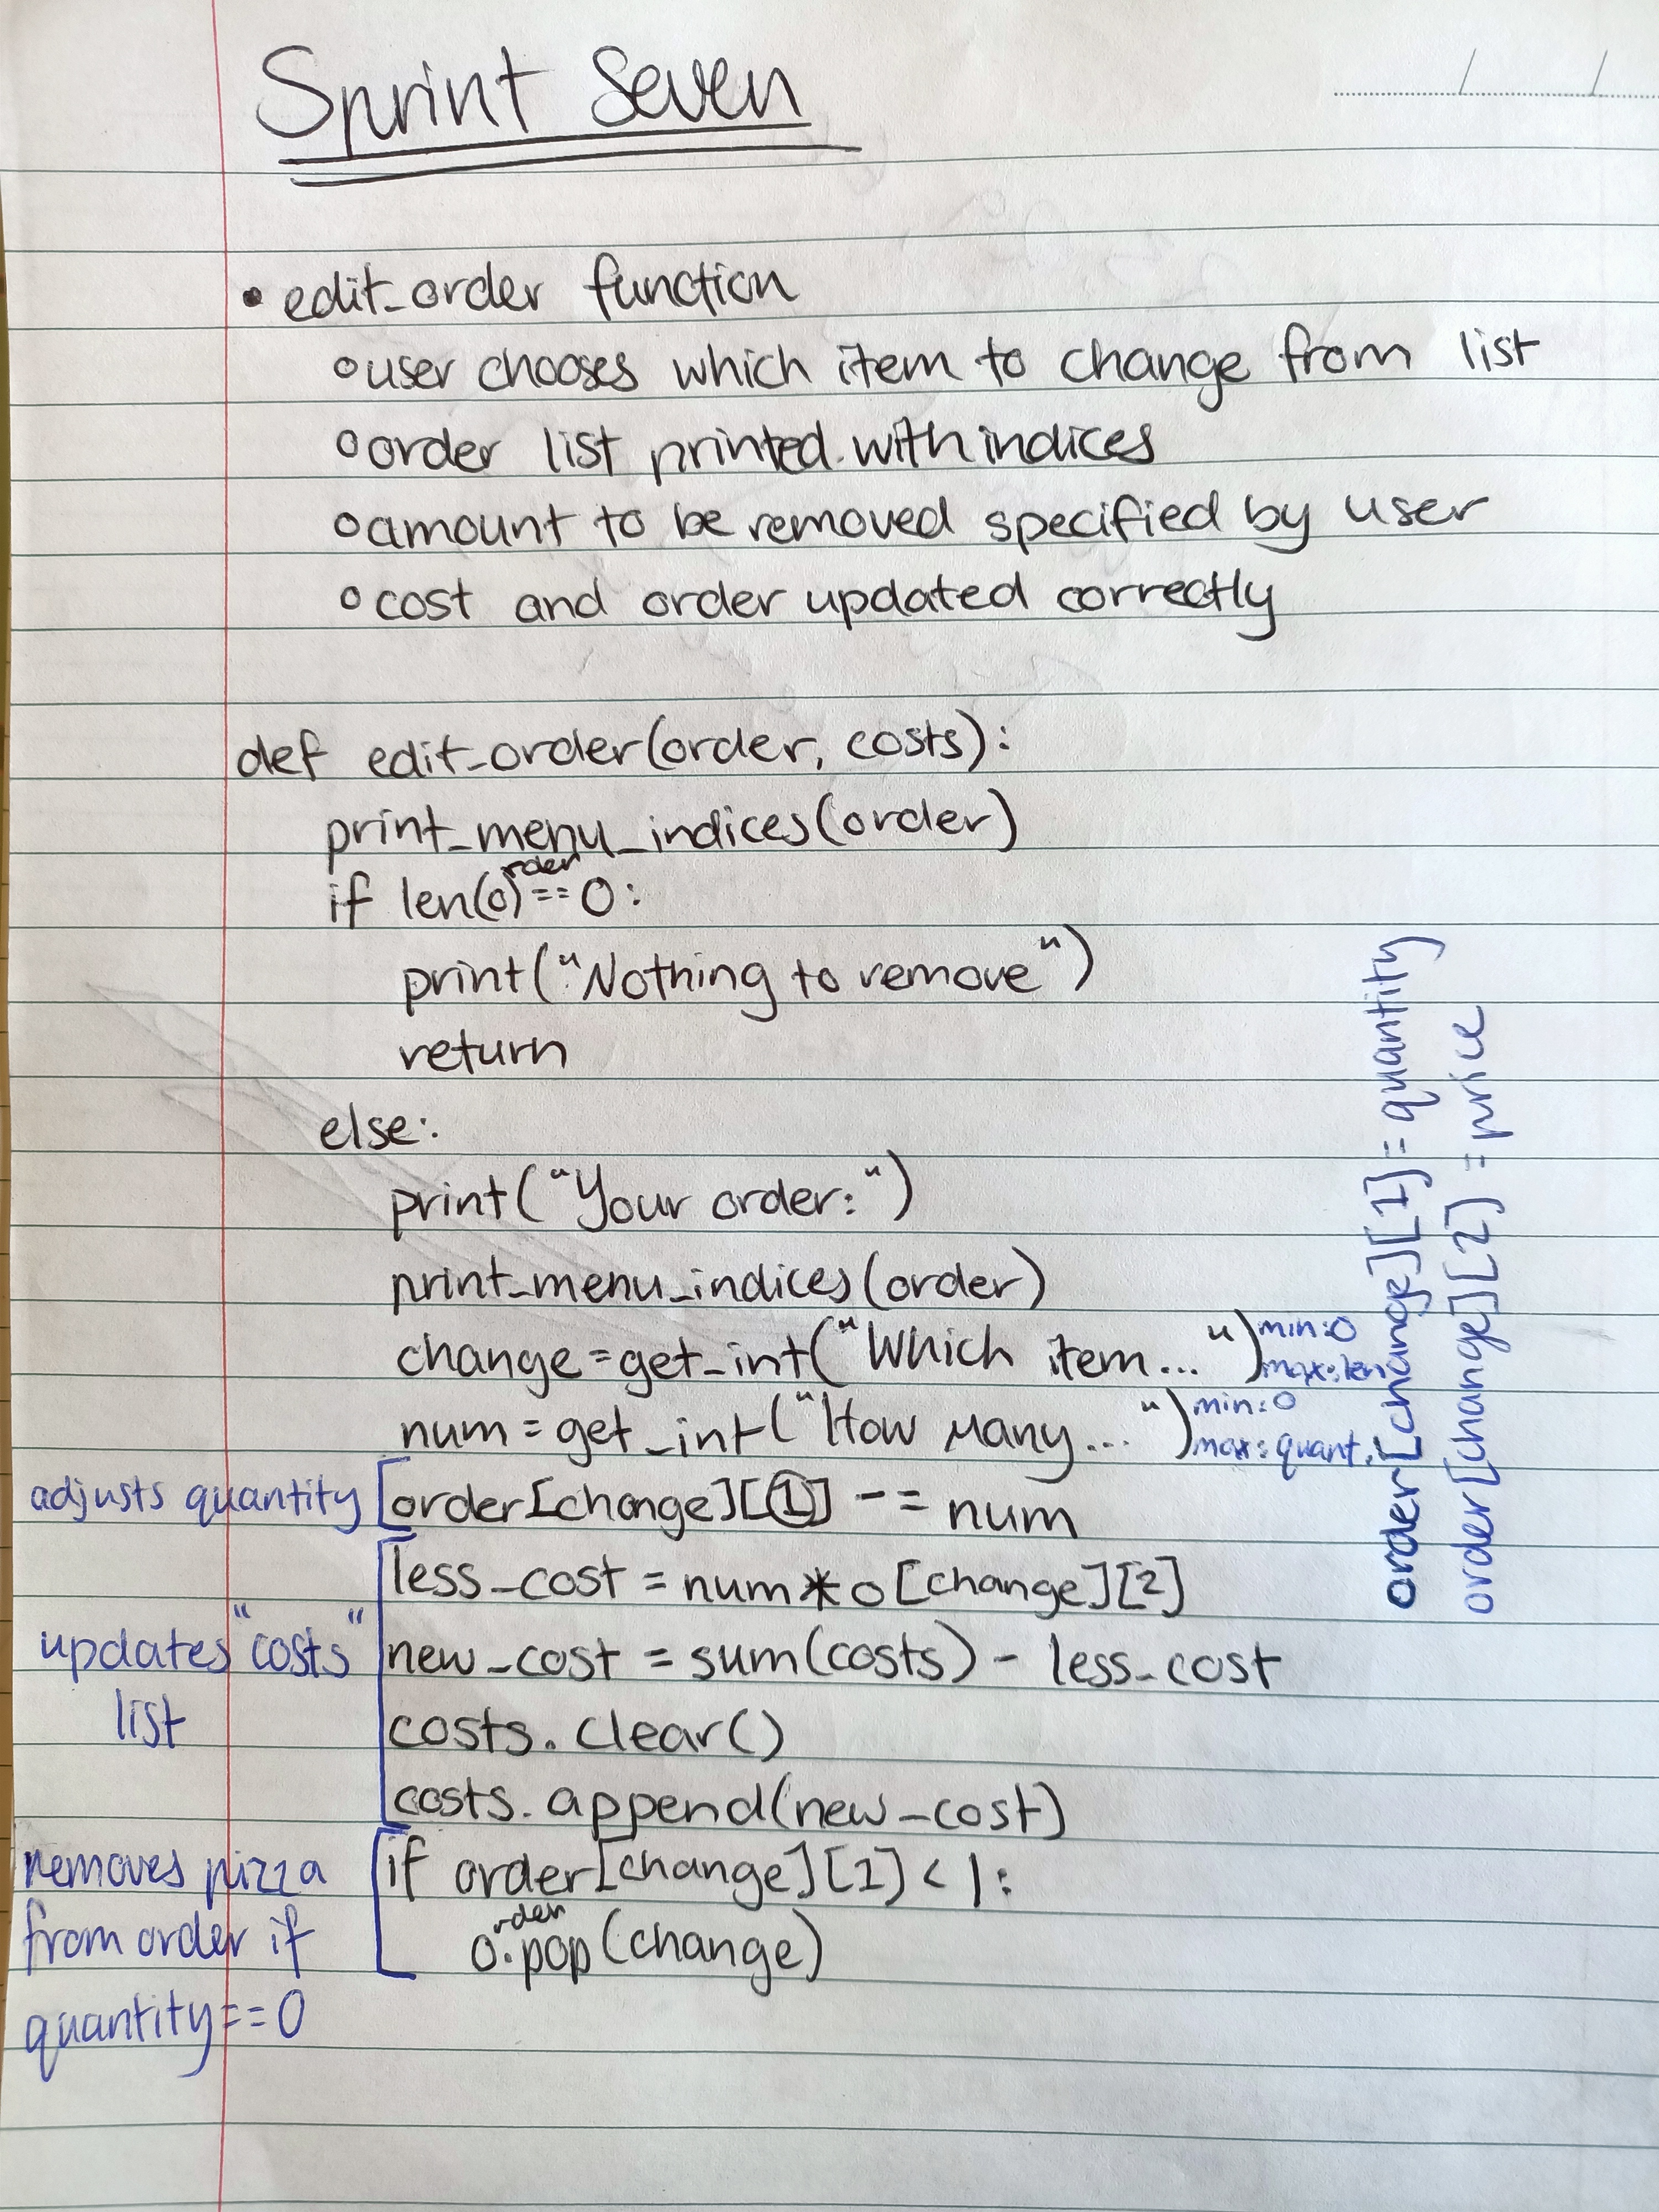 Sprint Seven
/ /
• edit_order function
o user chooses which item to change from list
o order list printed with indices
o amount to be removed specified by user
o cost and order updated correctly
def edit_order(order, costs):
print_menu_indices(order)
if len(order) == 0:
print("Nothing to remove")
return
else:
print("Your order:")
print_menu_indices(order)
change = get_int("Which item...") min:0 max:len
num = get_int("How many...") min:0 max:quant.
adjusts quantity [order[change][1] -= num
less_cost = num * o[change][2]
updates "costs" list
new_cost = sum(costs) - less_cost
costs.clear()
costs.append(new_cost)
removes pizza from order if quantity==0
if order[change][1] < 1:
order.pop(change)
order[change][1] = quantity
order[change][2] = price